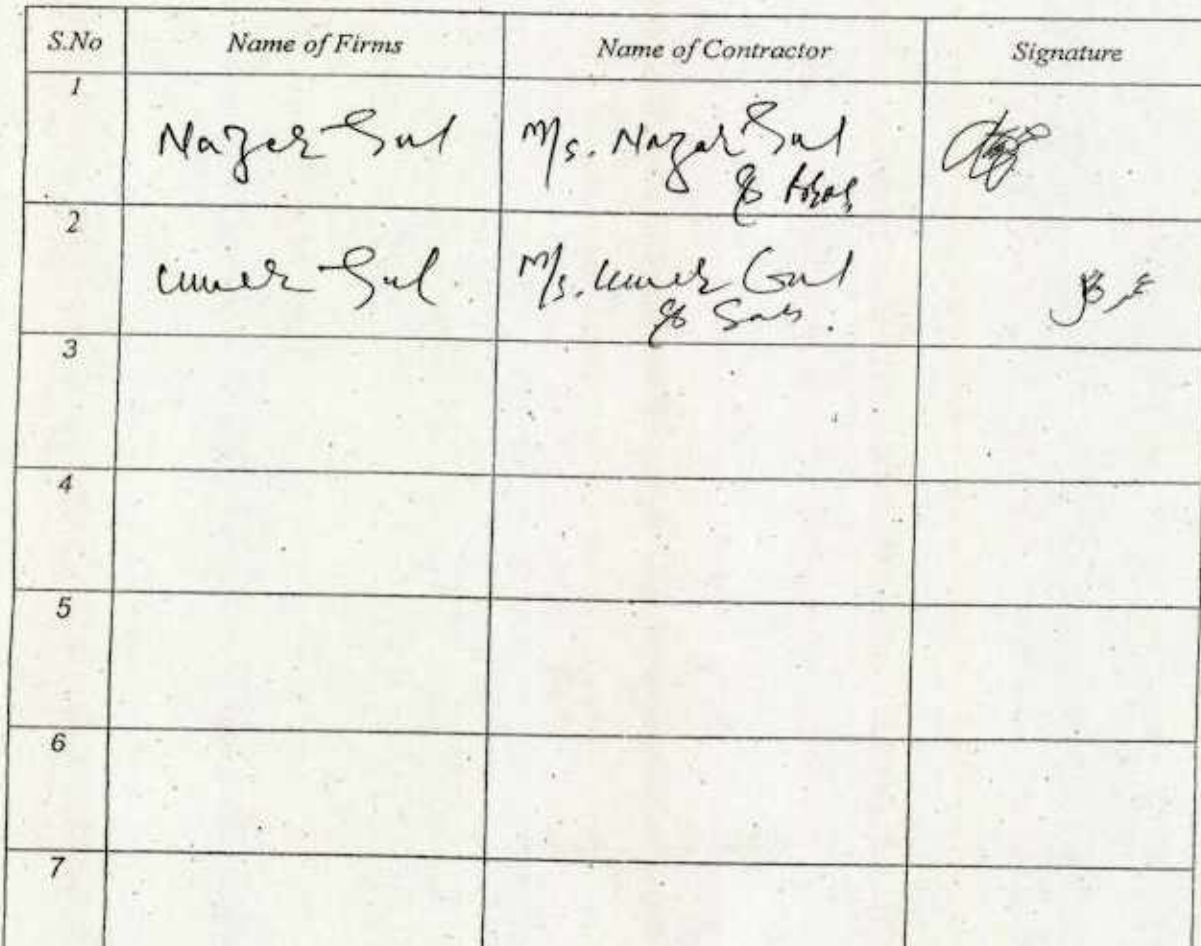 S.No Name of Firms Name of Contractor Signature
1
Nazer Gul M/s. Nazar Gul
& Bros
2
Umer Gul M/s. Umer Gul
& Sons.
3
4
5
6
7